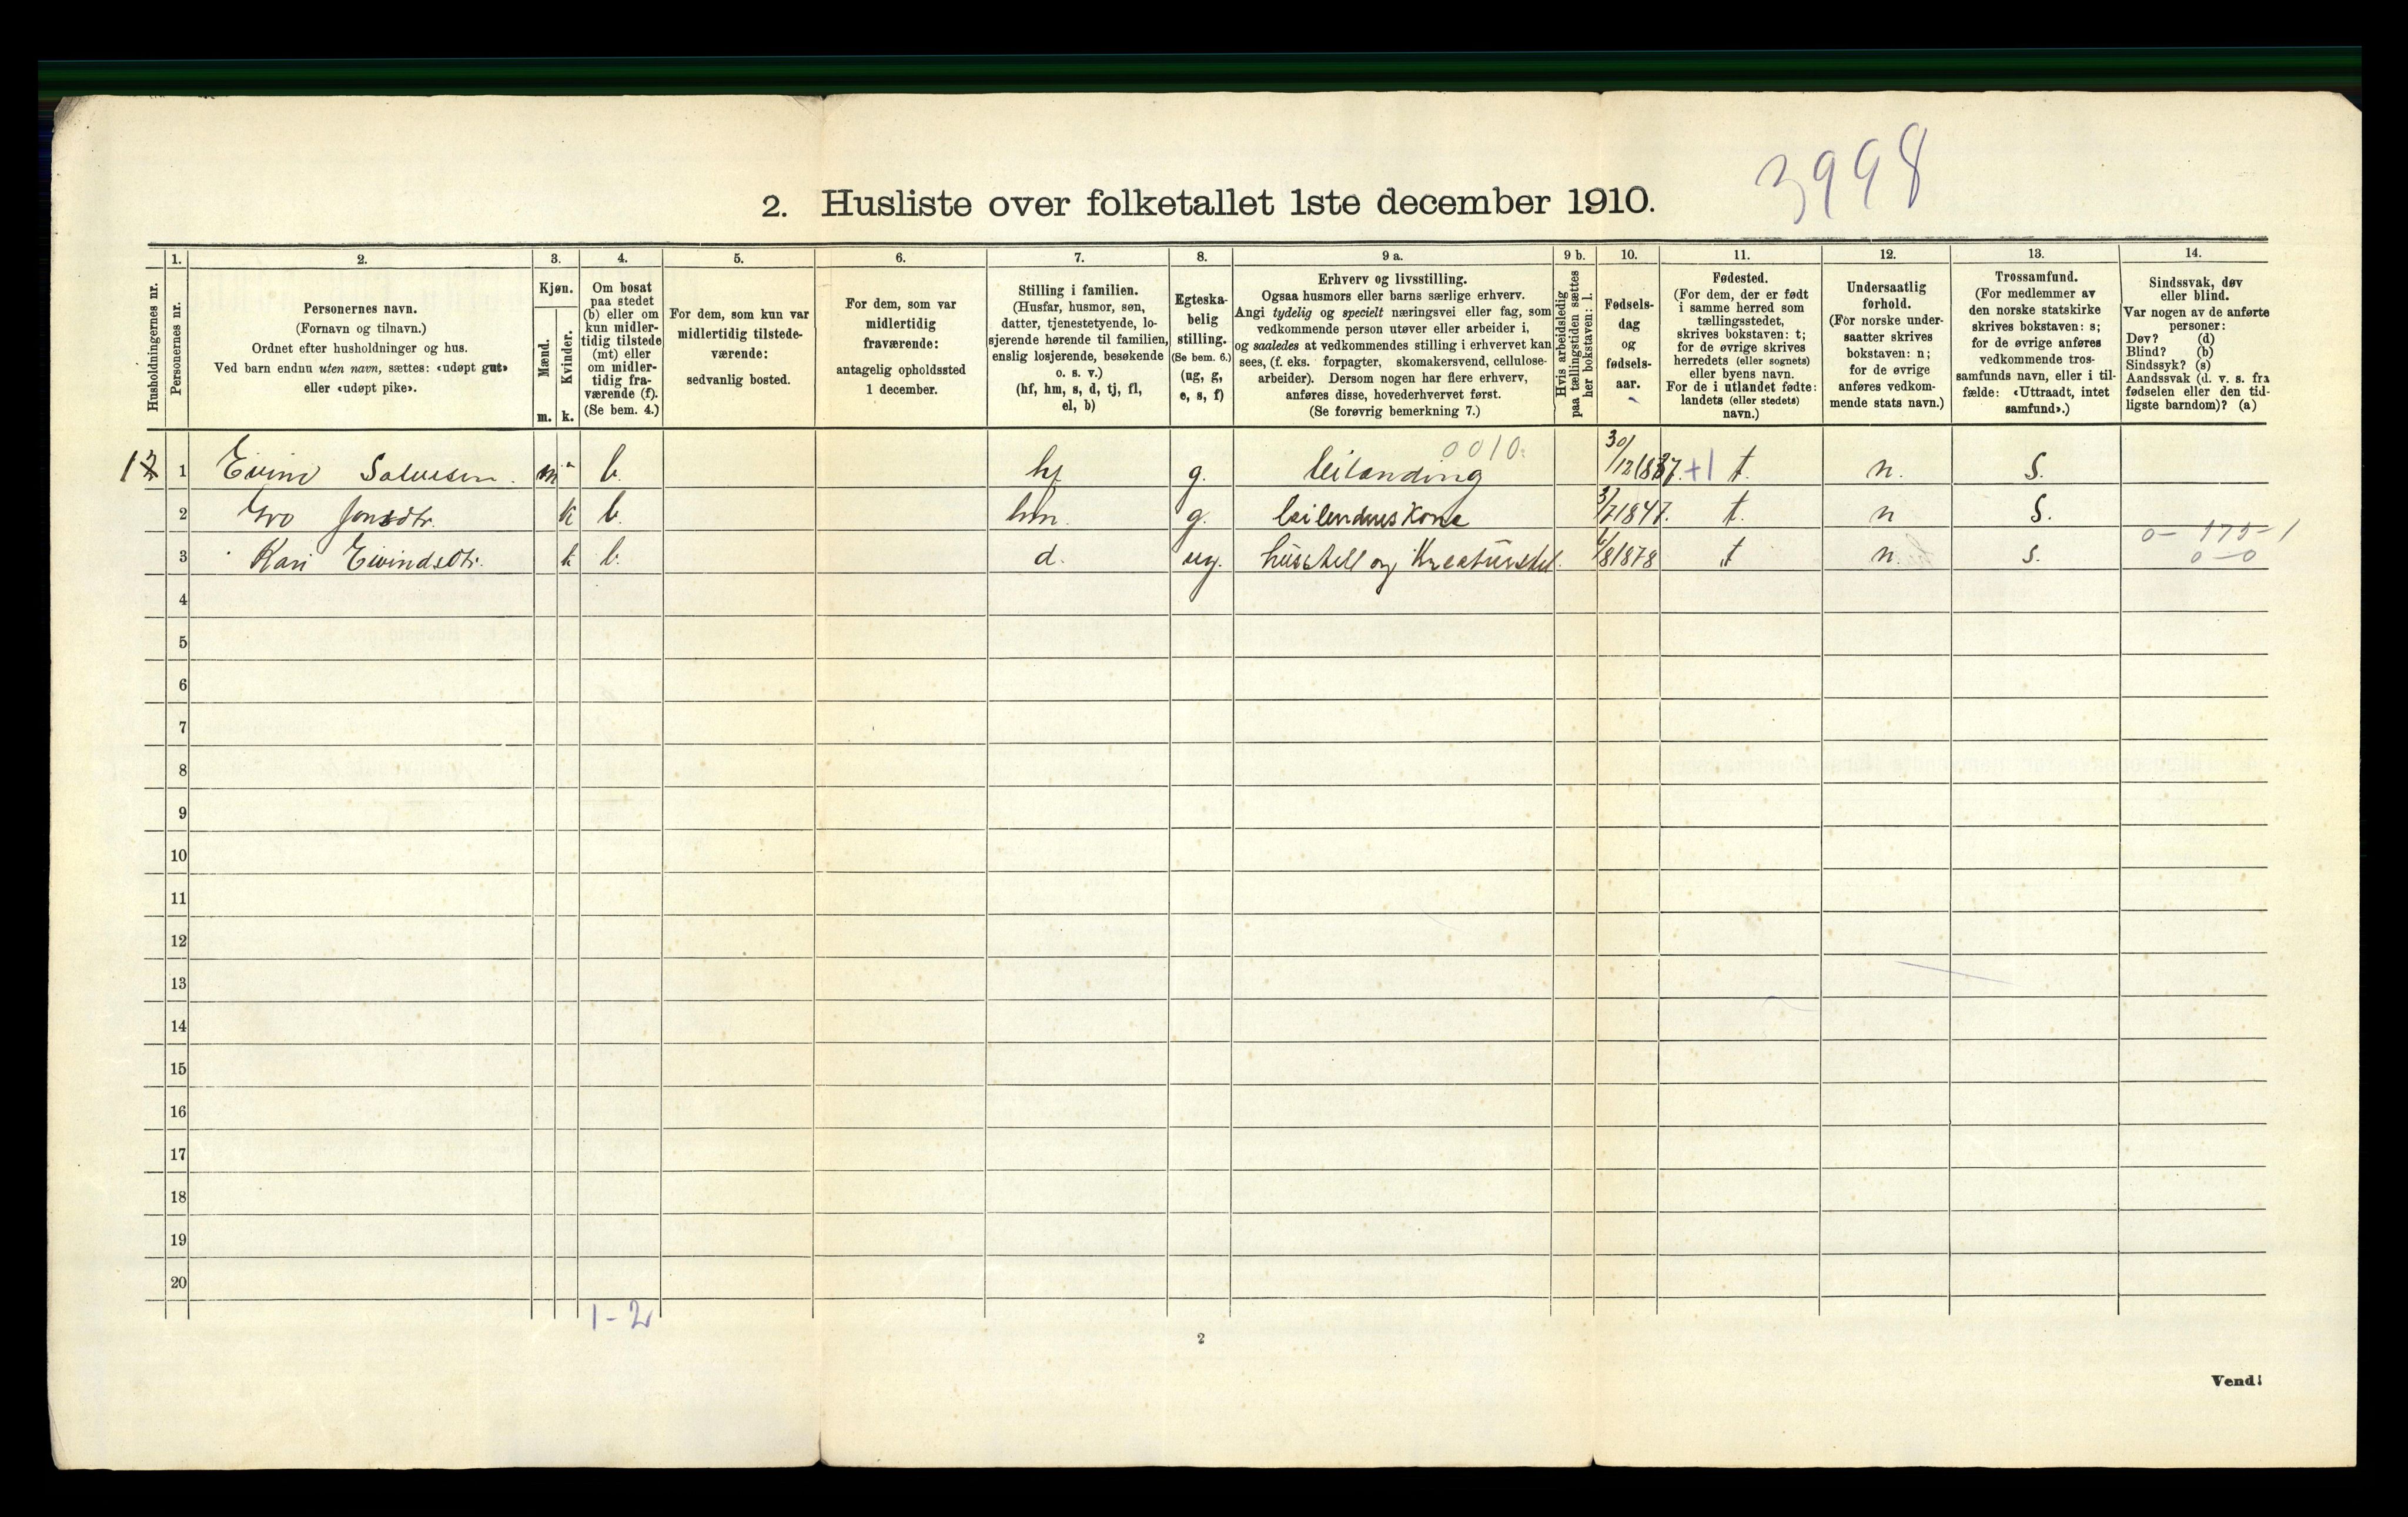 3998
2. Husliste over folketallet 1ste december 1910.
Husholdningernes nr.
1.
Personernes nr.
2.
Personernes navn.
(Fornavn og tilnavn.)
Ordnet efter husholdninger og hus.
Ved barn endnu uten navn, sættes: «udøpt gut»
eller «udøpt pike».
3.
Kjøn.
Mænd.
m.
Kvinder.
k.
4.
Om bosat
paa stedet
(b) eller om
kun midler-
tidig tilstede
(mt) eller
om midler-
tidig fra-
værende (f).
(Se bem. 4.)
5.
For dem, som kun var
midlertidig tilstede-
værende:
sedvanlig bosted.
6.
For dem, som var
midlertidig
fraværende:
antagelig opholdssted
1 december.
7.
Stilling i familien.
(Husfar, husmor, søn,
datter, tjenestetyende, lo-
sjerende hørende til familien,
enslig losjerende, besøkende
o. s. v.)
(hf, hm, s, d, tj, fl,
el, b)
8.
Egteska-
belig
stilling.
(Se bem. 6.)
(ug, g,
e, s, f)
9 a.
Erhverv og livsstilling.
Ogsaa husmors eller barns særlige erhverv.
Angi tydelig og specielt næringsvei eller fag, som
vedkommende person utøver eller arbeider i,
og saaledes at vedkommendes stilling i erhvervet kan
sees, (f. eks. forpagter, skomakersvend, cellulose-
arbeider). Dersom nogen har flere erhverv,
anføres disse, hovederhvervet først.
(Se forøvrig bemerkning 7.)
9 b.
Hvis arbeidsledig
paa tællingstiden sættes
her bokstaven: l.
10.
Fødsels-
dag
og
fødsels-
aar.
11.
Fødested.
(For dem, der er født
i samme herred som
tællingsstedet,
skrives bokstaven: t;
for de øvrige skrives
herredets (eller sognets)
eller byens navn.
For de i utlandet fødte:
landets (eller stedets)
navn.)
12.
Undersaatlig
forhold.
(For norske under-
saatter skrives
bokstaven: n;
for de øvrige
anføres vedkom-
mende stats navn.)
13.
Trossamfund.
(For medlemmer av
den norske statskirke
skrives bokstaven: s;
for de øvrige anføres
vedkommende tros-
samfunds navn, eller i til-
fælde: «Uttraadt, intet
samfund».)
14.
Sindssvak, døv
eller blind.
Var nogen av de anførte
personer:
Døv? (d)
Blind? (b)
Sindssyk? (s)
Aandssvak (d. v. s. fra
fødselen eller den tid-
ligste barndom)? (a)
0010.
1 1 Eivind Salvesen. m b. hf g. leilending 30/12 +1 t. n. S.
2 Gro Jonsdtr. k b. hm. g. leilendnuskone 3/7 1847. t. n S.
0-175-1
3 Kari Eivindsdtr. k b. d. ug. husstell og Kreaturstel. /8 1878 t n. s. 0-0
4
5
6
7
8
9
10
11
12
13
14
15
16
17
18
19
20
1-2
2
Vend!